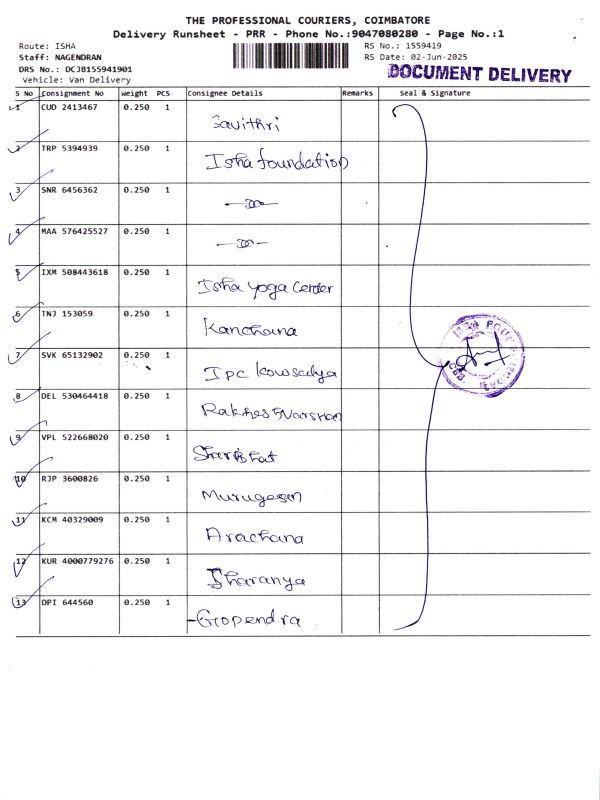 THE PROFESSIONAL COURIERS, COIMBATORE
Delivery Runsheet - PRR - Phone No.:9047080280 - Page No.:1
Route: ISHA
Staff: NAGENDRAN
DRS No.: DCJB155941901
Vehicle: Van Delivery
RS No.: 1559419
RS Date: 02-Jun-2025
DOCUMENT DELIVERY
S No Consignment No Weight PCS Consignee Details Remarks Seal & Signature
1 CUD 2413467 0.250 1 Savithri
2 TRP 5394939 0.250 1 Isha foundation
3 SNR 6456362 0.250 1
4 MAA 576425527 0.250 1
5 IXM 508443618 0.250 1 Isha yoga Center
6 TNJ 153059 0.250 1 Kanchana
7 SVK 65132902 0.250 1 Ipc Kowsalya
8 DEL 530464418 0.250 1
9 VPL 522668020 0.250 1
10 RJP 3600826 0.250 1 Murugesan
11 KCM 40329009 0.250 1 Arachana
12 KUR 4000779276 0.250 1 Sharanya
13 DPI 644560 0.250 1 Gopendra